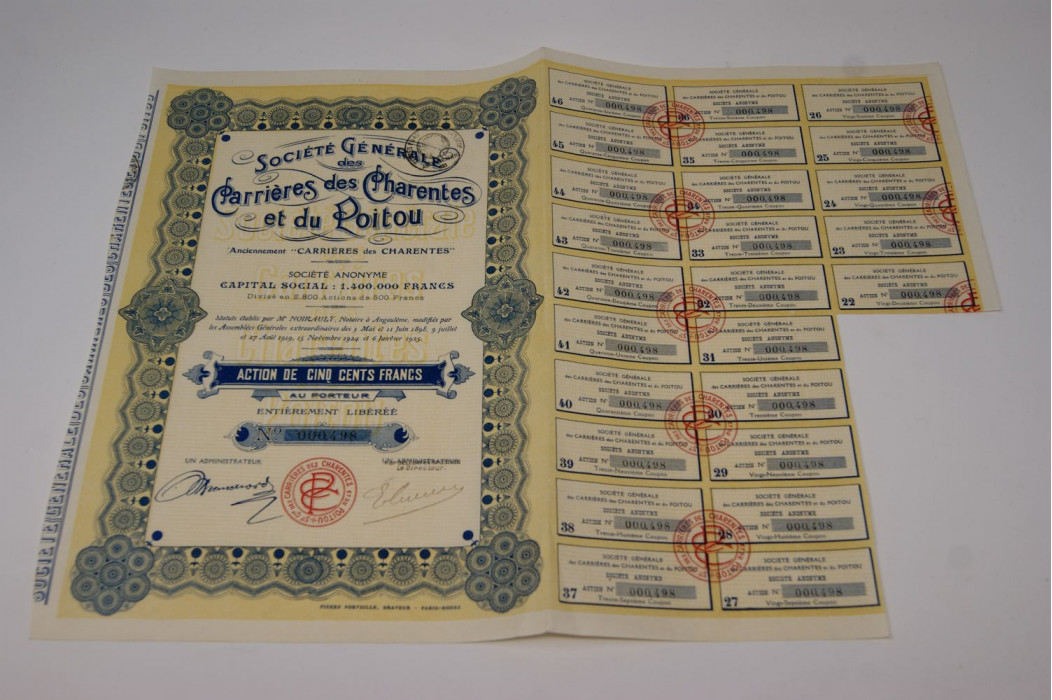 SOCIÉTÉ GÉNÉRALE
des
Carrières des Charentes
et du Poitou
Anciennement "CARRIÈRES des CHARENTES"
SOCIÉTÉ ANONYME
CAPITAL SOCIAL : 1.400.000 FRANCS
Divisé en 2.800 Actions de 500 Francs
Statuts établis par Me NOIRAULT, Notaire à Angoulême, modifiés par
les Assemblées Générales extraordinaires des 3 Mai et 11 Juin 1898, 9 juillet
et 27 Août 1919, 15 Novembre 1924 et 6 Janvier 1925.
ACTION DE CINQ CENTS FRANCS
AU PORTEUR
ENTIÈREMENT LIBÉRÉE
No 000,498
UN ADMINISTRATEUR
Le Directeur.
CARRIÈRES DES CHARENTES
POITOU
SOCIÉTÉ GÉNÉRALE
des CARRIÈRES des CHARENTES et du POITOU
SOCIÉTÉ ANONYME
46 ACTION No 000,498
Quarante-Sixième Coupon
SOCIÉTÉ GÉNÉRALE
des CARRIÈRES des CHARENTES et du POITOU
SOCIÉTÉ ANONYME
36 ACTION No 000,498
Trente-Sixième Coupon
SOCIÉTÉ GÉNÉRALE
des CARRIÈRES des CHARENTES et du POITOU
SOCIÉTÉ ANONYME
26 ACTION No 000,498
Vingt-Sixième Coupon
SOCIÉTÉ GÉNÉRALE
des CARRIÈRES des CHARENTES et du POITOU
SOCIÉTÉ ANONYME
45 ACTION No 000,498
Quarante-Cinquième Coupon
SOCIÉTÉ GÉNÉRALE
des CARRIÈRES des CHARENTES et du POITOU
SOCIÉTÉ ANONYME
35 ACTION No 000,498
Trente-Cinquième Coupon
SOCIÉTÉ GÉNÉRALE
des CARRIÈRES des CHARENTES et du POITOU
SOCIÉTÉ ANONYME
25 ACTION No 000,498
Vingt-Cinquième Coupon
SOCIÉTÉ GÉNÉRALE
des CARRIÈRES des CHARENTES et du POITOU
SOCIÉTÉ ANONYME
44 ACTION No 000,498
Quarante-Quatrième Coupon
SOCIÉTÉ GÉNÉRALE
des CARRIÈRES des CHARENTES et du POITOU
SOCIÉTÉ ANONYME
34 ACTION No 000,498
Trente-Quatrième Coupon
SOCIÉTÉ GÉNÉRALE
des CARRIÈRES des CHARENTES et du POITOU
SOCIÉTÉ ANONYME
24 ACTION No 000,498
Vingt-Quatrième Coupon
SOCIÉTÉ GÉNÉRALE
des CARRIÈRES des CHARENTES et du POITOU
SOCIÉTÉ ANONYME
43 ACTION No 000,498
Quarante-Troisième Coupon
SOCIÉTÉ GÉNÉRALE
des CARRIÈRES des CHARENTES et du POITOU
SOCIÉTÉ ANONYME
33 ACTION No 000,498
Trente-Troisième Coupon
SOCIÉTÉ GÉNÉRALE
des CARRIÈRES des CHARENTES et du POITOU
SOCIÉTÉ ANONYME
23 ACTION No 000,498
Vingt-Troisième Coupon
SOCIÉTÉ GÉNÉRALE
des CARRIÈRES des CHARENTES et du POITOU
SOCIÉTÉ ANONYME
42 ACTION No 000,498
Quarante-Deuxième Coupon
SOCIÉTÉ GÉNÉRALE
des CARRIÈRES des CHARENTES et du POITOU
SOCIÉTÉ ANONYME
32 ACTION No 000,498
Trente-Deuxième Coupon
SOCIÉTÉ GÉNÉRALE
des CARRIÈRES des CHARENTES et du POITOU
SOCIÉTÉ ANONYME
22 ACTION No 000,498
Vingt-Deuxième Coupon
SOCIÉTÉ GÉNÉRALE
des CARRIÈRES des CHARENTES et du POITOU
SOCIÉTÉ ANONYME
41 ACTION No 000,498
Quarante-Unième Coupon
SOCIÉTÉ GÉNÉRALE
des CARRIÈRES des CHARENTES et du POITOU
SOCIÉTÉ ANONYME
31 ACTION No 000,498
Trente-Unième Coupon
SOCIÉTÉ GÉNÉRALE
des CARRIÈRES des CHARENTES et du POITOU
SOCIÉTÉ ANONYME
40 ACTION No 000,498
Quarantième Coupon
SOCIÉTÉ GÉNÉRALE
des CARRIÈRES des CHARENTES et du POITOU
SOCIÉTÉ ANONYME
30 ACTION No 000,498
Trentième Coupon
SOCIÉTÉ GÉNÉRALE
des CARRIÈRES des CHARENTES et du POITOU
SOCIÉTÉ ANONYME
39 ACTION No 000,498
Trente-Neuvième Coupon
SOCIÉTÉ GÉNÉRALE
des CARRIÈRES des CHARENTES et du POITOU
SOCIÉTÉ ANONYME
29 ACTION No 000,498
Vingt-Neuvième Coupon
SOCIÉTÉ GÉNÉRALE
des CARRIÈRES des CHARENTES et du POITOU
SOCIÉTÉ ANONYME
38 ACTION No 000,498
Trente-Huitième Coupon
SOCIÉTÉ GÉNÉRALE
des CARRIÈRES des CHARENTES et du POITOU
SOCIÉTÉ ANONYME
28 ACTION No 000,498
Vingt-Huitième Coupon
SOCIÉTÉ GÉNÉRALE
des CARRIÈRES des CHARENTES et du POITOU
SOCIÉTÉ ANONYME
37 ACTION No 000,498
Trente-Septième Coupon
SOCIÉTÉ GÉNÉRALE
des CARRIÈRES des CHARENTES et du POITOU
SOCIÉTÉ ANONYME
27 ACTION No 000,498
Vingt-Septième Coupon